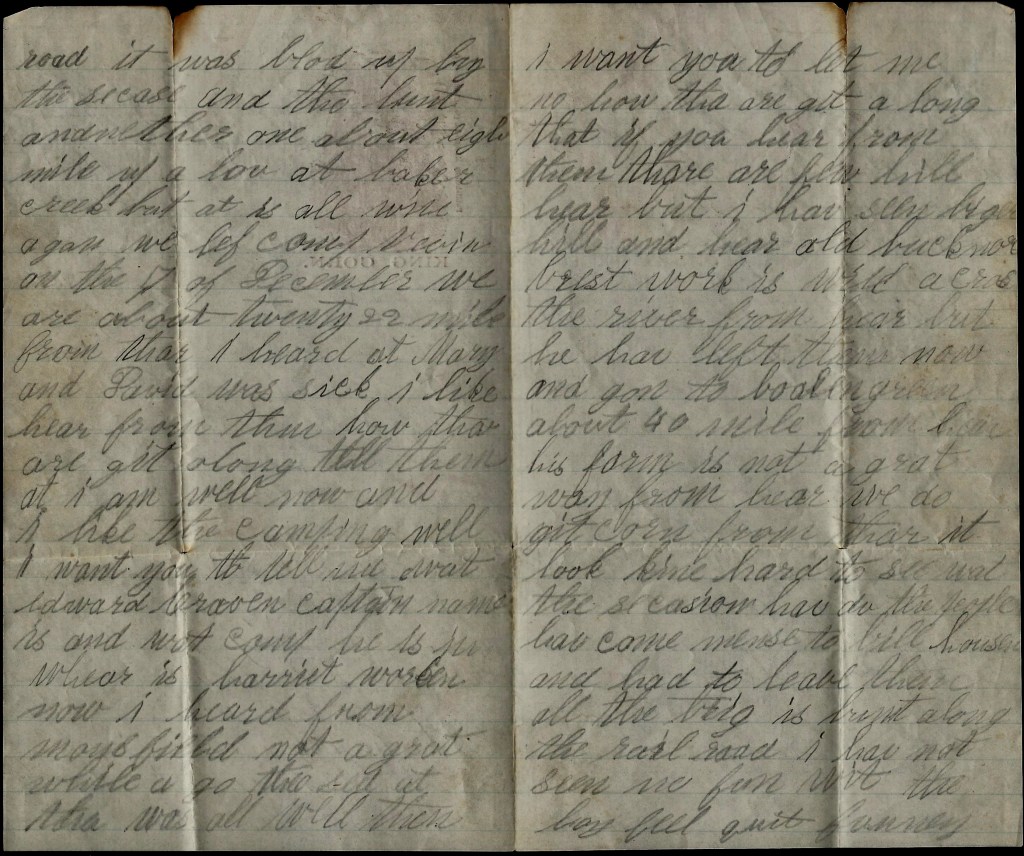 road it was blod up by
the secase and the burnt
andnether one about eigh
mile up a bov at baker
creek but at is all wrie
agan we lef comp nevin
on the 17 of December we
are about twenty 22 mile
from thar i heard at Mary
and David was sick i like
hear from them how thar
are git along till them
at i am well now and
i like the camping well
i want you to tell me wat
edward Craven captain name
is and wot comp he is in
whear is harriet worken
now i heard from
maysfield not a grat
while a go the sed at
tha was all well then
i want you to let me
no how tha are git a long
that if you hear from
them thare are few hill
hear but i hav seen biger
hill and hear old buckner
brest work is wrile acros
the river from hear but
he hav left them now
and gon to boalengreen
about 40 mile from hear
his farm is not a grat
way from hear we do
git corn from thar it
look kine hard to see wat
the secasiom hav do the people
hav come mense to bill housen
and had to leave them
all the brig is burnt along
the rail road i hav not
seen no fun wot the
boy feel quit funney